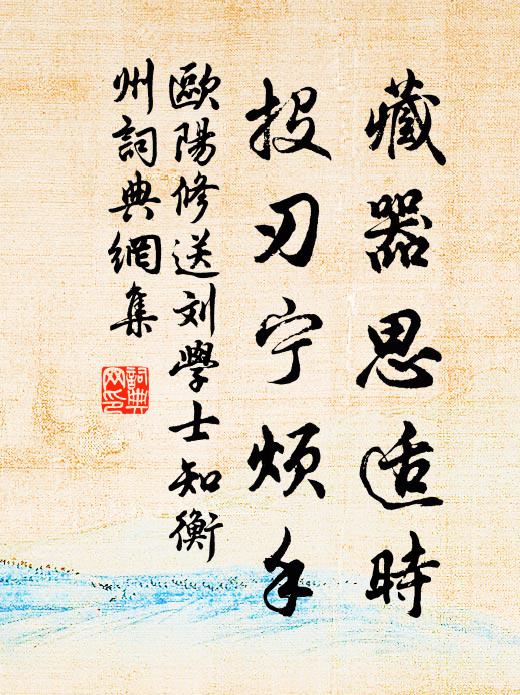 藏器思适時
投刃宁煩手
歐陽修送刘學士知衡
州詞典網集
詞典
网印